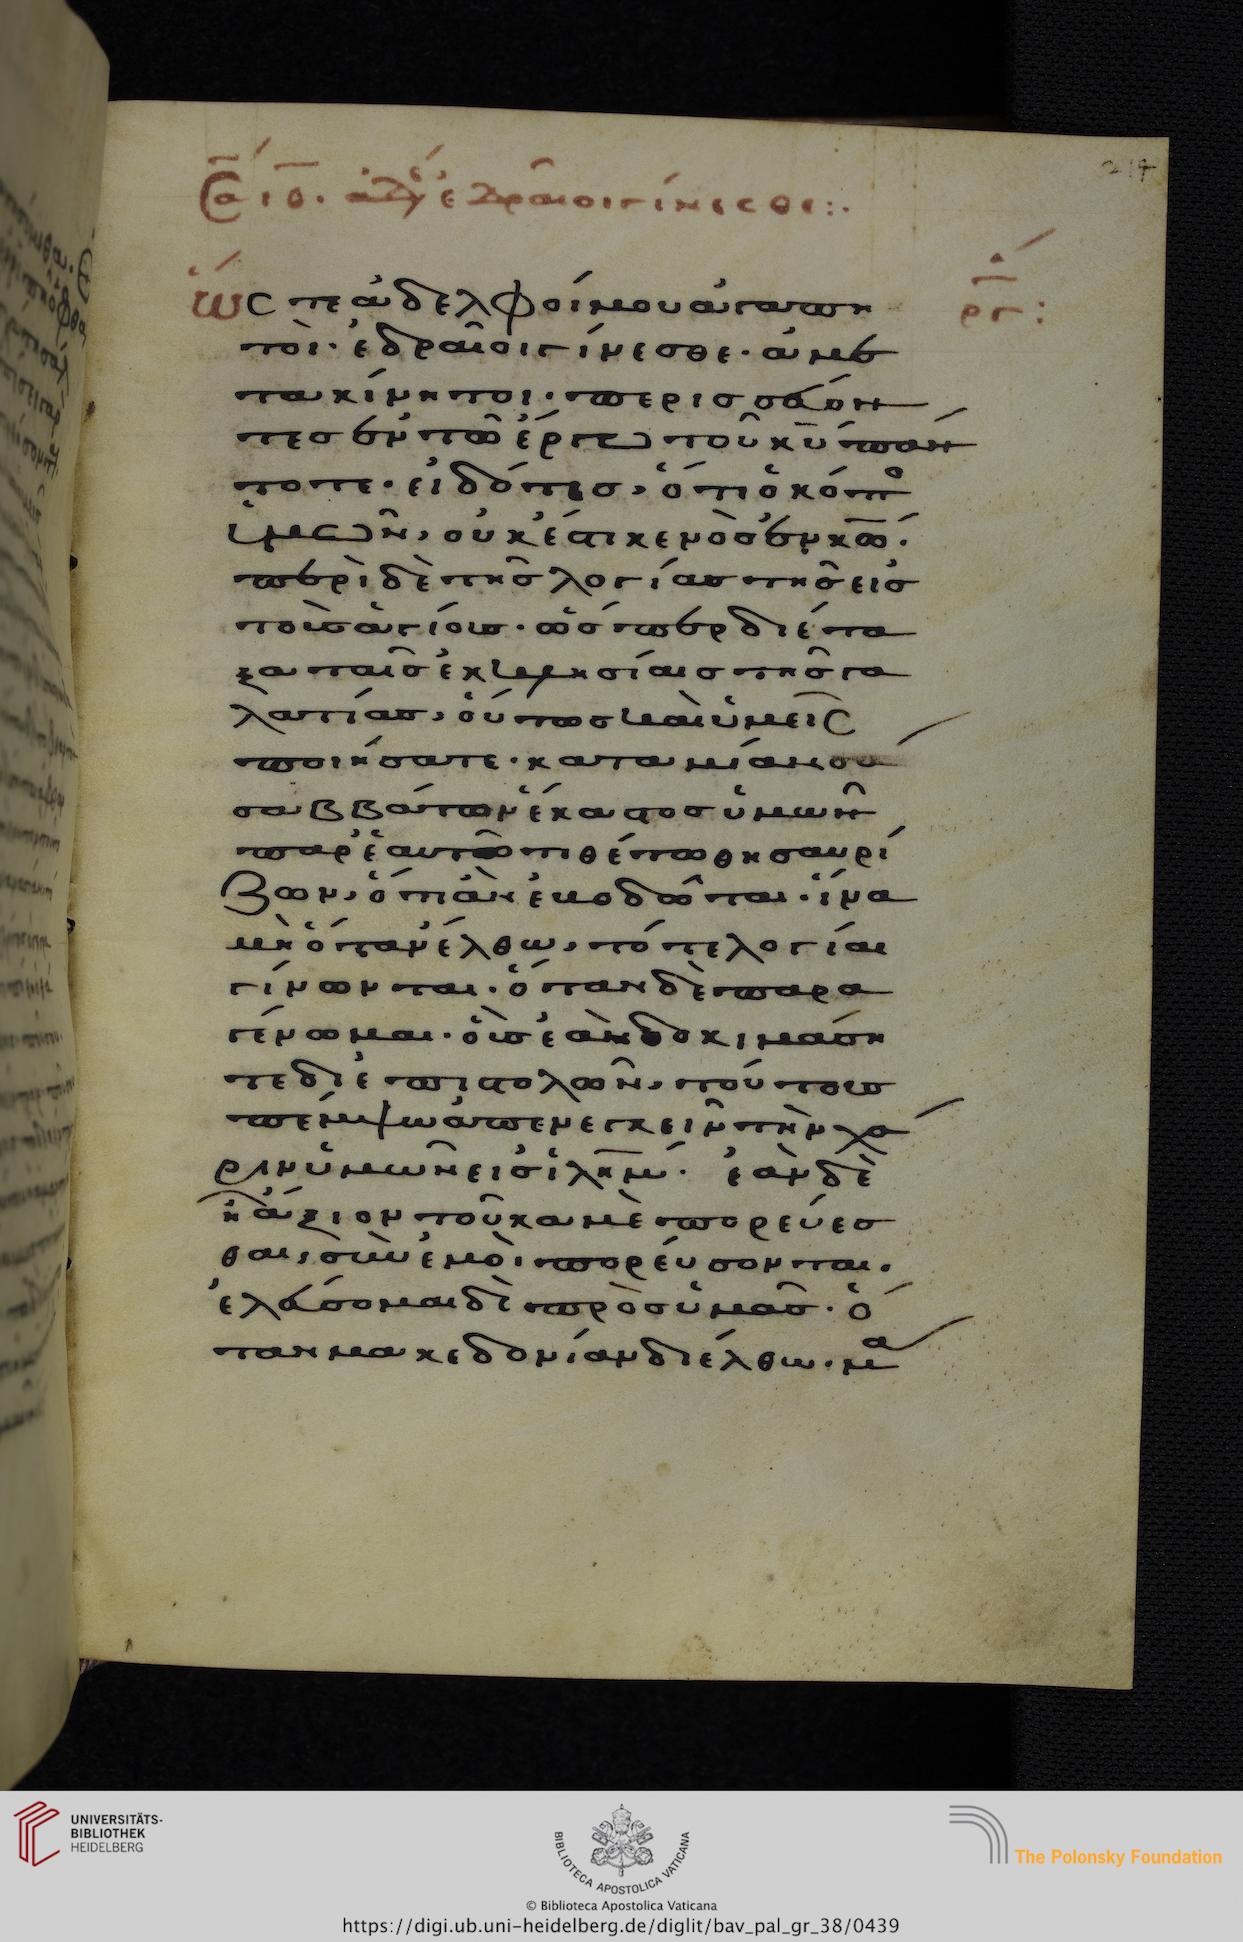 217
ὥς τε ἀδελφοί μου ἀγαπη
τοὶ· ἑδραῖοι γίνεσθε· ἀμε
τακίνητοι· περισσεύον
τες ἐν τῶ ἔργω τοῦ κ̅υ πάν
τοτε· εἰδότες, ὅτι ὁ κόπος
ὑμῶν, οὐκ ἔστι κενὸς ἐν κ̅ω.
περὶ δὲ τῆς λογίας τῆς εἰς
τοὺς ἁγίους· ὥσπερ διέτα
ξα ταῖς ἐκκλησίαις τῆς γα
λατίας, οὕτως καὶ ὑμεῖς
ποιήσατε· κατα μίαν
σαββάτων ἕκαστος ὑμῶν
παρ' ἑαυτῶ τιθέτω θησαυρί
ζων, ὅτι ἂν εὐοδῶται· ἵνα
μὴ ὅταν ἔλθω, τότε λογίαι
γίνωνται· ὅταν δὲ παρα
γένωμαι· οὓς ἐὰν δοκιμάση
τε δι' ἐπιστολῶν, τούτους
πέμψω ἀπενεγκεῖν τὴν χά
ριν ὑμῶν εἰς ἱλη̅μ· ἐὰν δὲ
ἦ ἄξιον τοῦ κἀμὲ πορεύεσ
θαι, σὺν ἐμοὶ πορεύσονται.
ἐλεύσομαι δὲ πρὸς ὑμᾶς· ὅ
ταν μακεδονίαν διέλθω· μα
UNIVERSITÄTS-
BIBLIOTHEK
HEIDELBERG
BIBLIOTECA APOSTOLICA VATICANA
The Polonsky Foundation
© Biblioteca Apostolica Vaticana
https://digi.ub.uni-heidelberg.de/diglit/bav_pal_gr_38/0439